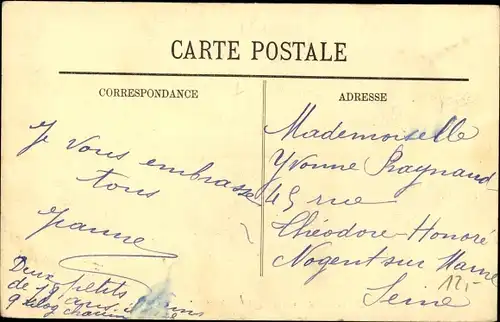 CARTE POSTALE
CORRESPONDANCE
Je vous embrasse
tous
Jeanne
Deux petits
de 18 ans
9 chacun
ADRESSE
Mademoiselle
Yvonne Raynaud
45 rue
Théodore-Honoré
Nogent sur Marne
Seine
12,-